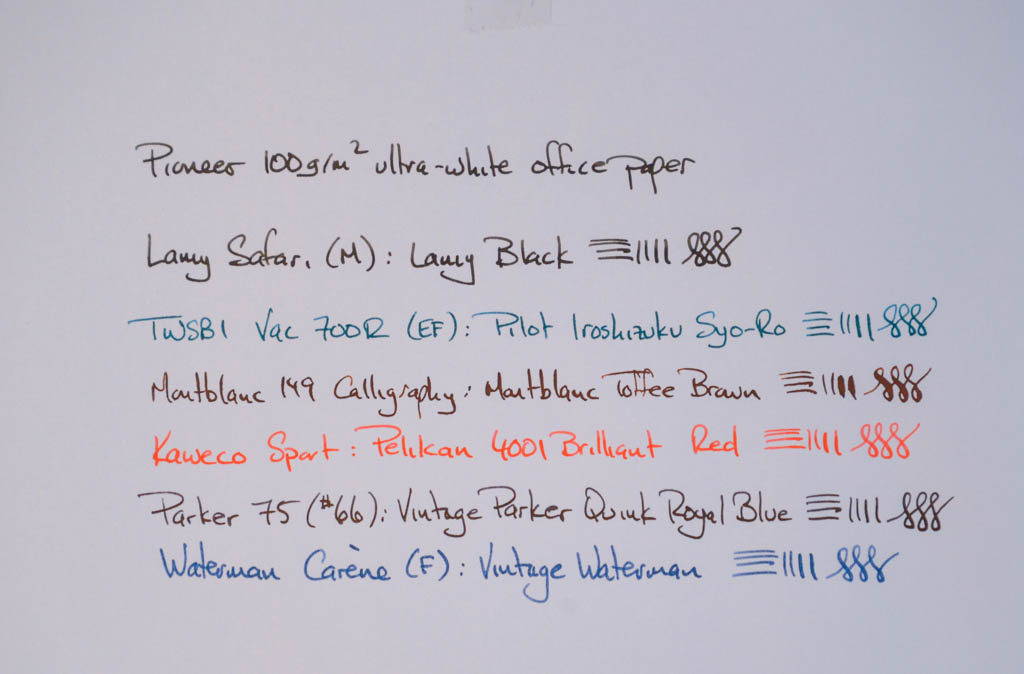 Pioneer 100g/m² ultra-white office paper
Lamy Safari (M): Lamy Black
TWSBI Vac 700R (EF): Pilot Iroshizuku Syo-Ro
Montblanc 149 Calligraphy: Montblanc Toffee Brown
Kaweco Sport: Pelikan 4001 Brilliant Red
Parker 75 (#66): Vintage Parker Quink Royal Blue
Waterman Carène (F): Vintage Waterman